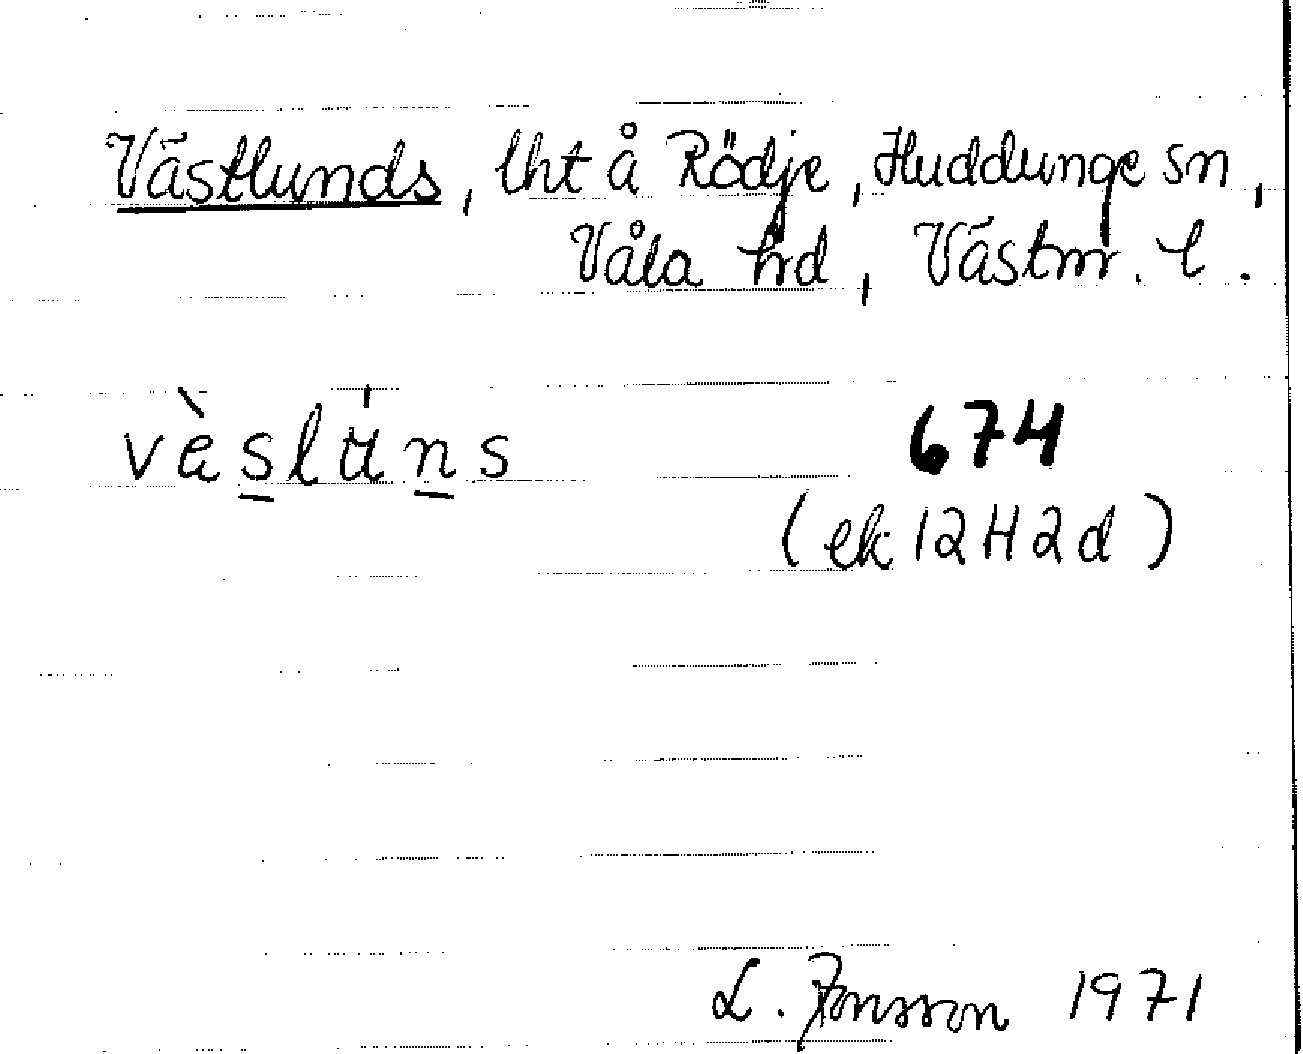 Västlunds, lht å Rödje, Huddunge sn,
Våla hrd, Västm. l.
vàslu̍ns
674
(ek 12H2d)
L. Jonsson 1971